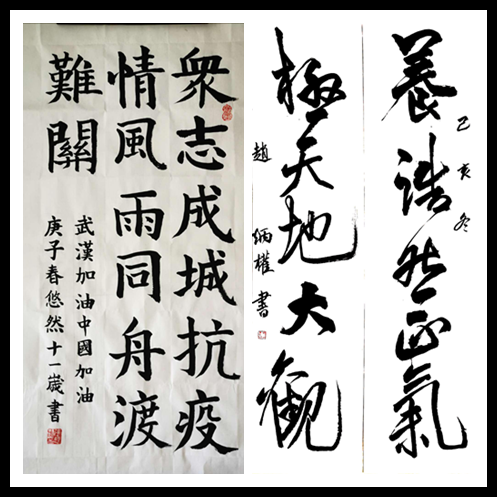 眾志成城抗疫
情風雨同舟渡
難關
武漢加油中國加油
庚子春悠然十一歲書
養浩然正氣
己亥冬
極天地大觀
趙炳權書